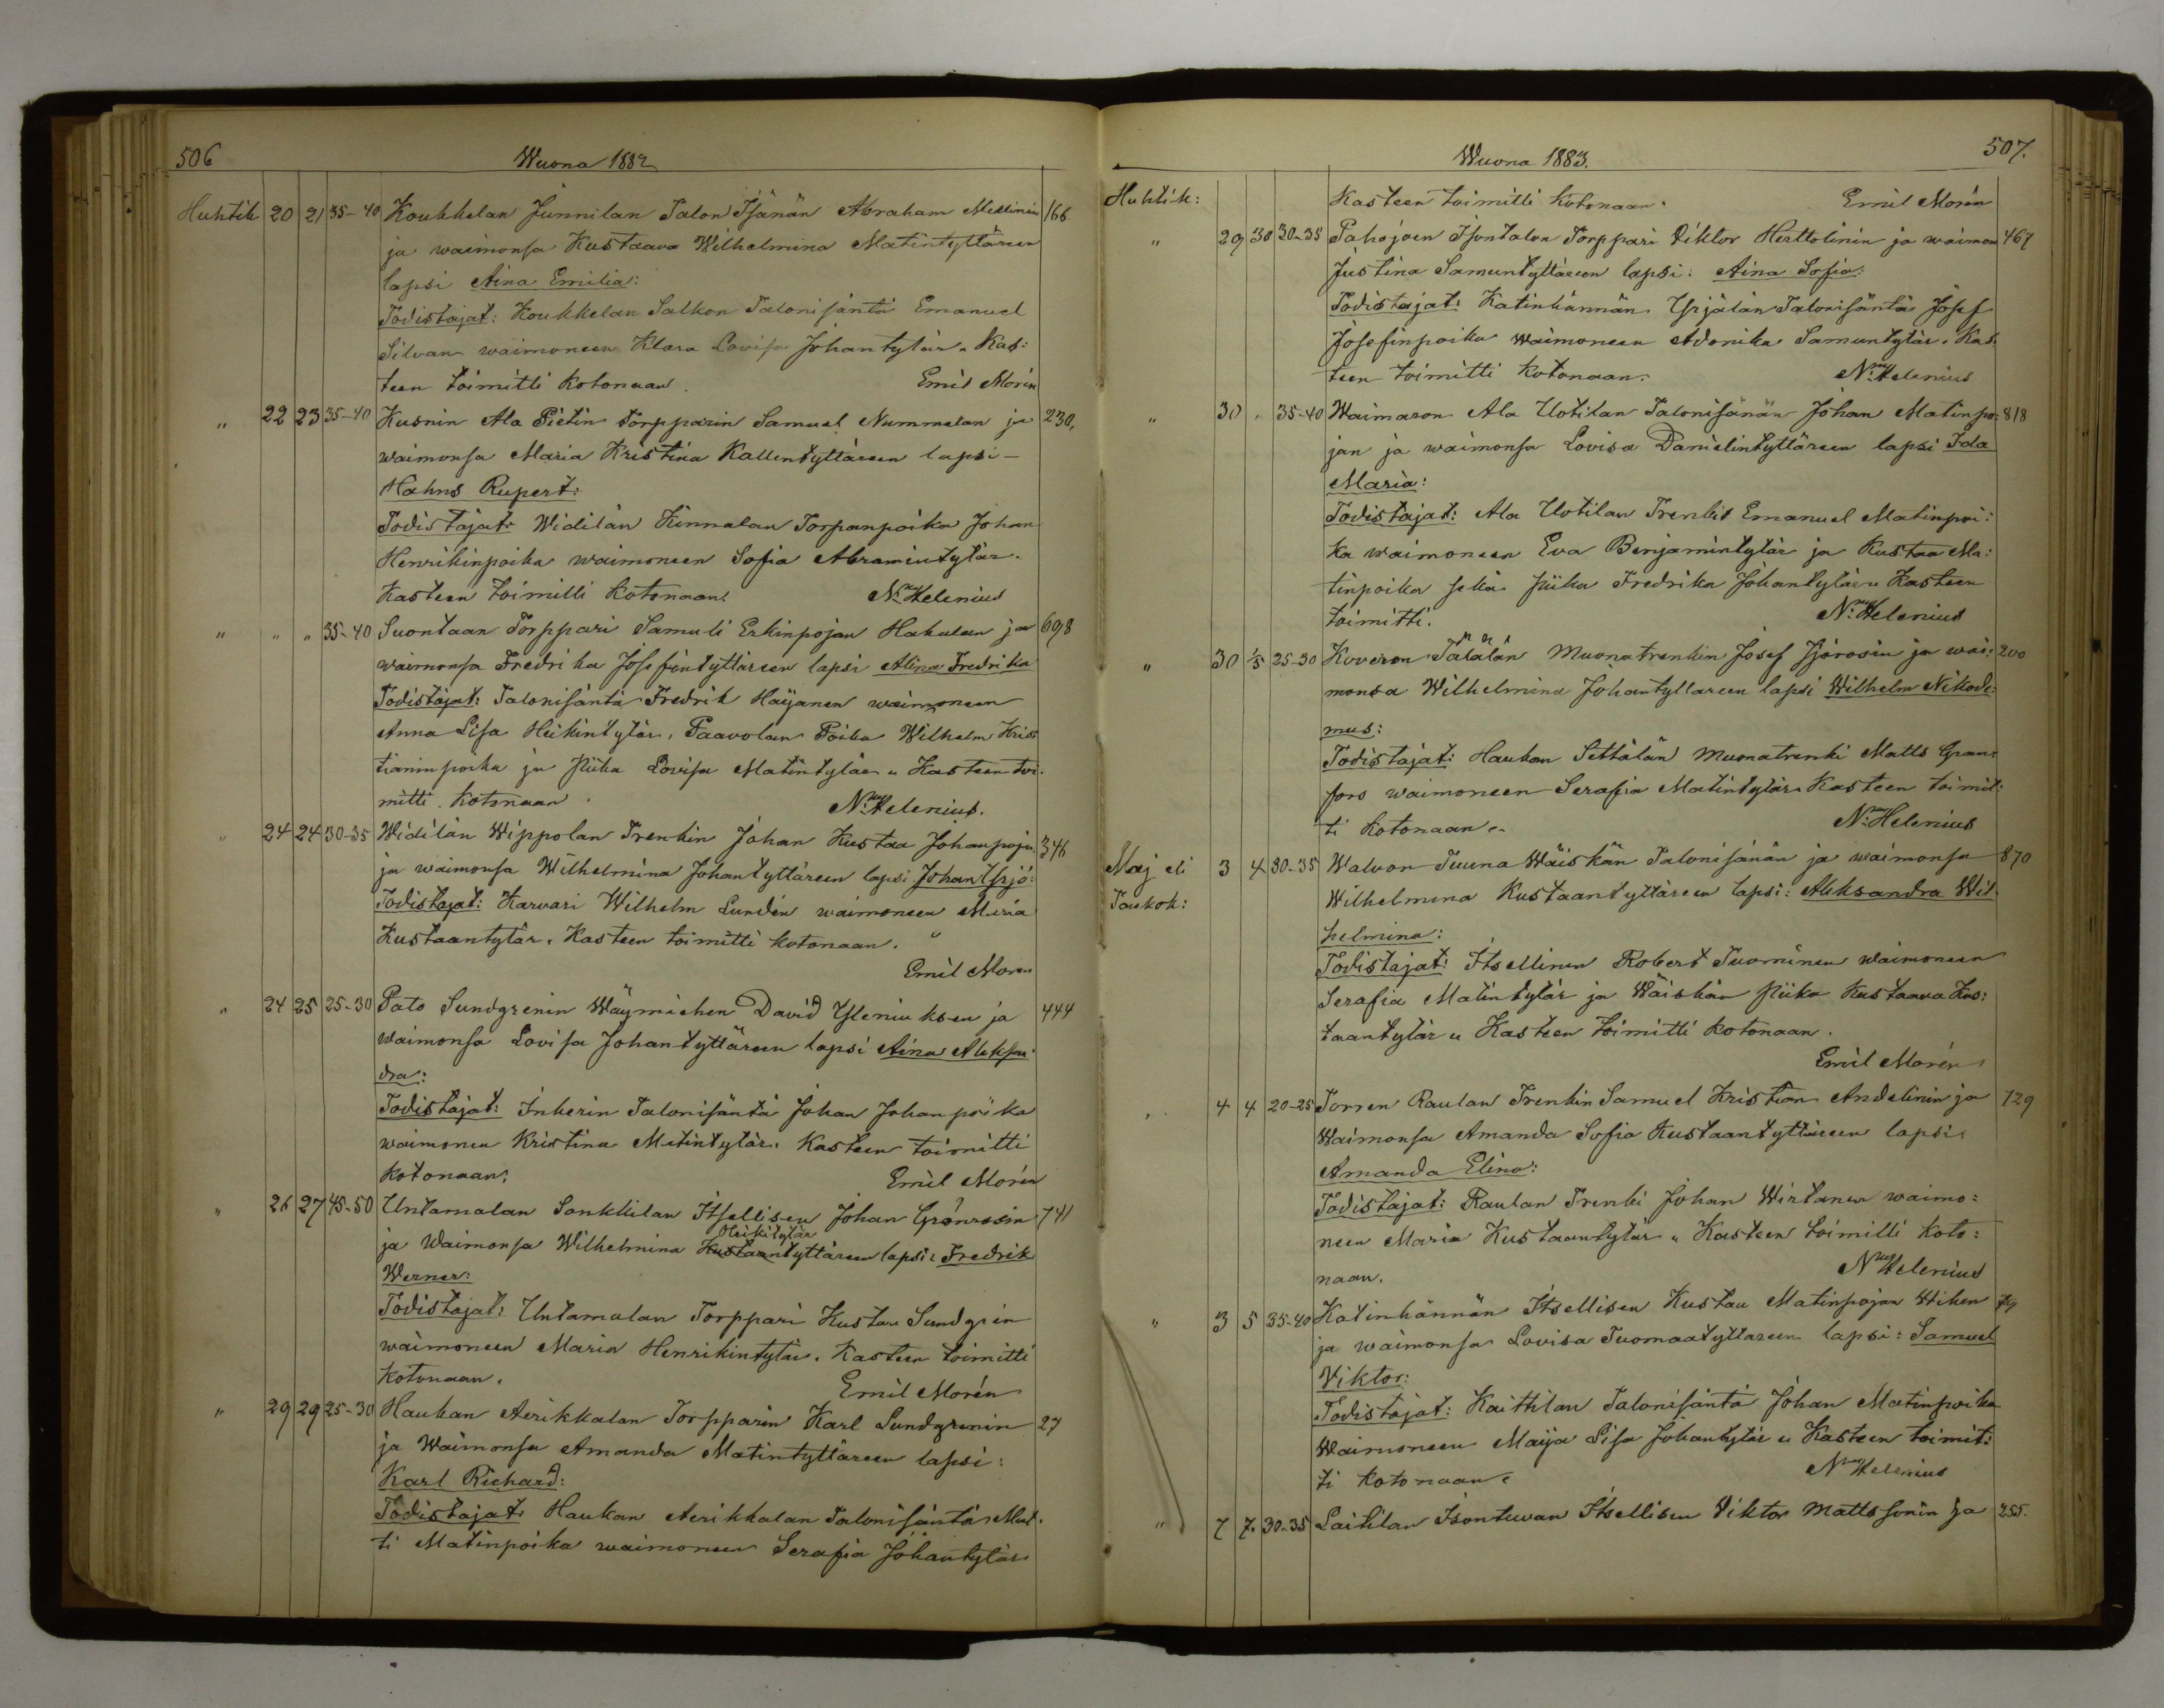 506
Wuona 1882
Huhtik 20 21 35-40 Koukkelan Junnilan Talon Isänän Abraham Mellinin 166
ja waimonsa Kustaava Wilhelmina Matintyttäreen
lapsi Aina Emilia:
Todistajat: Koukkelan Salkon Talonisäntä Emanuel
Silvan waimoneen Klara Lovisa Johantytär. Kas:
teen toimitti kotonaan. Emil Morén
" 22 23 35-40 Kusnin Ala Pietin torpparin Samuel Nummelan ja 230.
waimonsa Maria Kristina Kallentyttäreen lapsi-
Hahns Rupert:
Todistajat: Widilän Kinnalan Torpanpoika Johan
Henrikinpoika waimoneen Sofia Abramintytär.
Kasteen toimitti kotonaan. N. Helenius
" " " 35-40 Suontaan Torppari Samuli Erkinpojan Hakulan ja 698
waimonsa Fredrika Josefintyttäreen lapsi Alina Fredrika
Todistajat: Talonisäntä Fredrik Häijänen waimoneen
Anna Lisa Heikintytär, Paavolan Poika Wilhelm Kris:
tianinpoika ja Piika Lovisa Matintytär " Kasteen toi:
mitti kotonaan. N. Helenius.
" 24 24 30-35 Widilän Wippolan Trenkin Johan Kustaa Johanpojan 346
ja waimonsa Wilhelmina Johantyttäreen lapsi Johan Yrjö:
Todistajat: Karvari Wilhelm Lundén waimoneen Maria
Kustaantytär. Kasteen toimitti kotonaan. "
Emil Morén
" 24 25 25-30 Pato Sundgrenin Wäymiehen David Yleniuksen ja 444
waimonsa Lovisa Johantyttäreen lapsi Aina Aleksan:
dra:
Todistajat: Inkerin Talonisäntä Johan Johanpoika
waimoneen Kristina Matintytär. Kasteen toimitti
kotonaan. Emil Morén
" 26 27 45-50 Untamalan Sonkkilan Itsellisen Johan Grönrosin 741
Heikitytär
ja Waimonsa Wilhelmina Kustaantyttäreen lapsi: Fredrik
Werner:
Todistajat: Untamalan Torppari Kustaa Sundgren
waimoneen Maria Henrikintytär. Kasteen toimitti
kotonaan. Emil Morén
" 29 29 25-30 Haukan Aerikkalan Torpparin Karl Lundgrenin 27
ja Waimonsa Amanda Matintyttäreen lapsi:
Karl Richard:
Todistajat: Haukan Aerikkalan Talonisäntä Mat:
ti Matinpoika waimoneen Serafia Johantytär
507.
Wuona 1883.
Huhtik: Kasteen toimitti kotonaan. Emil Morén
" 29 30 30-35 Pahojoen Isontalon Torppari Viktor Herttolinin ja waimon 467
Justina Samuntyttäreen lapsi: Aina Sofia:
Todistajat: Katinhännän Yrjälän Talonisäntä Josef
Josefinpoika waimoneen Adonika Samuntytär. Kas
teen toimitti kotonaan. N. Helenius
" 30 " 35-40 Waimaron Ala Uotilan Talonisänän Johan Matinpo: 818
jan ja waimonsa Lovisa Danielintyttäreen lapsi Ida
Maria:
Todistajat: Ala Uotilan Trenkit Emanuel Matinpoi:
ka waimoneen Eva Benjamintytär ja Kustaa Ma:
tinpoika sekä Piika Fredrika Johantytär " Kasteen
toimitti. N. Helenius
" 30 1/5 25-30 Koveron Tälälän Muonatrenkin Josef Sjörosin ja wai: 200
monsa Wilhelmina Johantyttareen lapsi Wilhelm Nikode:
mus:
Todistajat: Haukan Settälän Muonatrenki Matts Gran:
fors waimoneen Serafia Matintytär. Kasteen toimit:
ti kotonaan. N. Helenius
Maj eli 3 4 30-35 Walvon Tuuna Wäiskän Talonisänän ja waimonsa 870
Toukok: Wilhelmina Kustaantyttäreen lapsi: Aleksandra Wil
helmina:
Todistajat: Itsellinen Robert Tuominen waimoneen
Serafia Matintytär ja Wäiskän Piika Kustaava Kus:
taantytär " Kasteen toimitti kotonaan.
Emil Morén
" 4 4 20-25 Torren Raulan Trenkin Samuel Kristian Andelinin ja 729
Waimonsa Amanda Sofia Kustaantyttäreen lapsi:
Amanda Elina:
Todistajat: Raulan Trenki Johan Wirtanen waimo:
neen Maria Kustaantytär " Kasteen toimitti koto:
naan. N. Helenius
" 3 5 35-40 Katinhännän Itsellisen Kustaa Matinpojan Wiken 79
ja waimonsa Lovisa Tuomaatyttareen lapsi: Samuel
Viktor:
Todistajat: Kaittilan Talonisäntä Johan Matinpoika
Waimoneen Maija Lisa Johantytär " Kasteen toimit:
ti kotonaan. N. Helenius
" 7 7. 30-35 Laitilan Isontuwan Itsellisen Viktor Mattssonin ja 255.